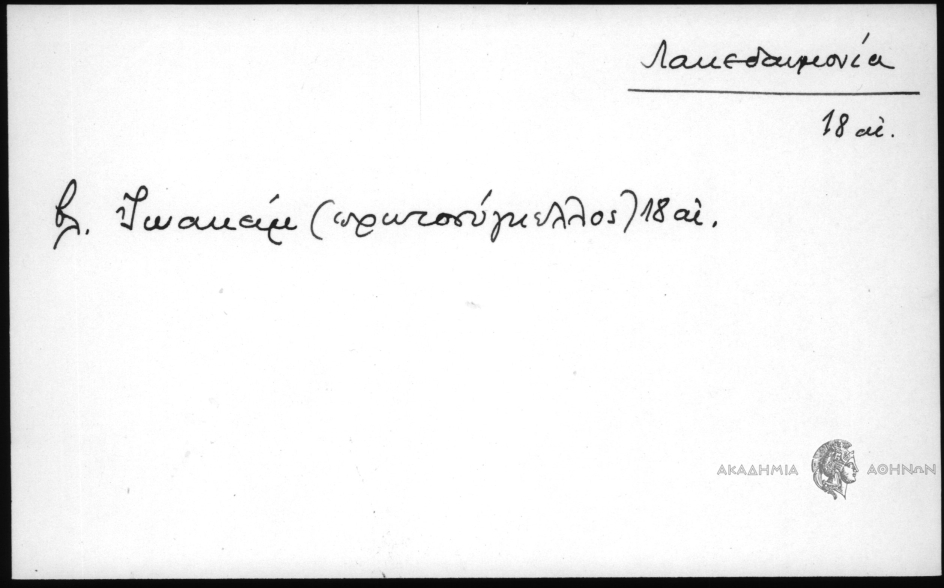 Λακεδαιμονία
18 αἰ.
βλ. Ἰωακείμ (πρωτοσύγκελλος) 18 αἰ.
ΑΚΑΔΗΜΙΑ ΑΘΗΝΩΝ